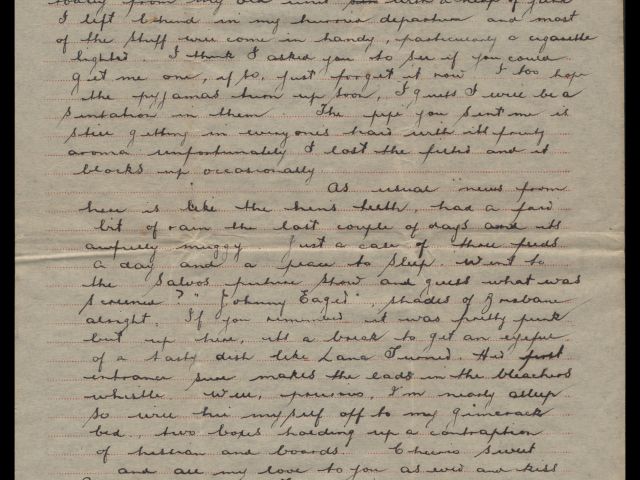 today from my old unit with a heap of junk
I left behind in my hurried departure and most
of the stuff will come in handy, particularly a cigarette
lighter. I think I asked you to see if you could
get me one, if so, just forget it now. I too hope
the pyjamas turn up soon, I guess I will be a
sensation in them. The pipe you sent me is
still getting in everyone's hair with its fruity
aroma unfortunately I lost the filter and it
blocks up occasionally.
As usual news from
here is like the hens teeth, had a fair
bit of rain the last couple of days and its
awfully muggy. Just a case of three feeds
a day and a place to sleep. Went to
the Salvos picture show and guess what was
screened? "Johnny Eager", shades of Brisbane
alright. If you remember it was pretty punk
but up here, its a break to get an eyeful
of a tasty dish like Lana Turner. Her first
entrance sure makes the lads in the bleachers
whistle. Well, precious, I'm nearly asleep
so will hie myself off to my gimcrack
bed, two boxes holding up a contraption
of hessian and boards. Cheerio sweet
and all my love to you as ever and kiss